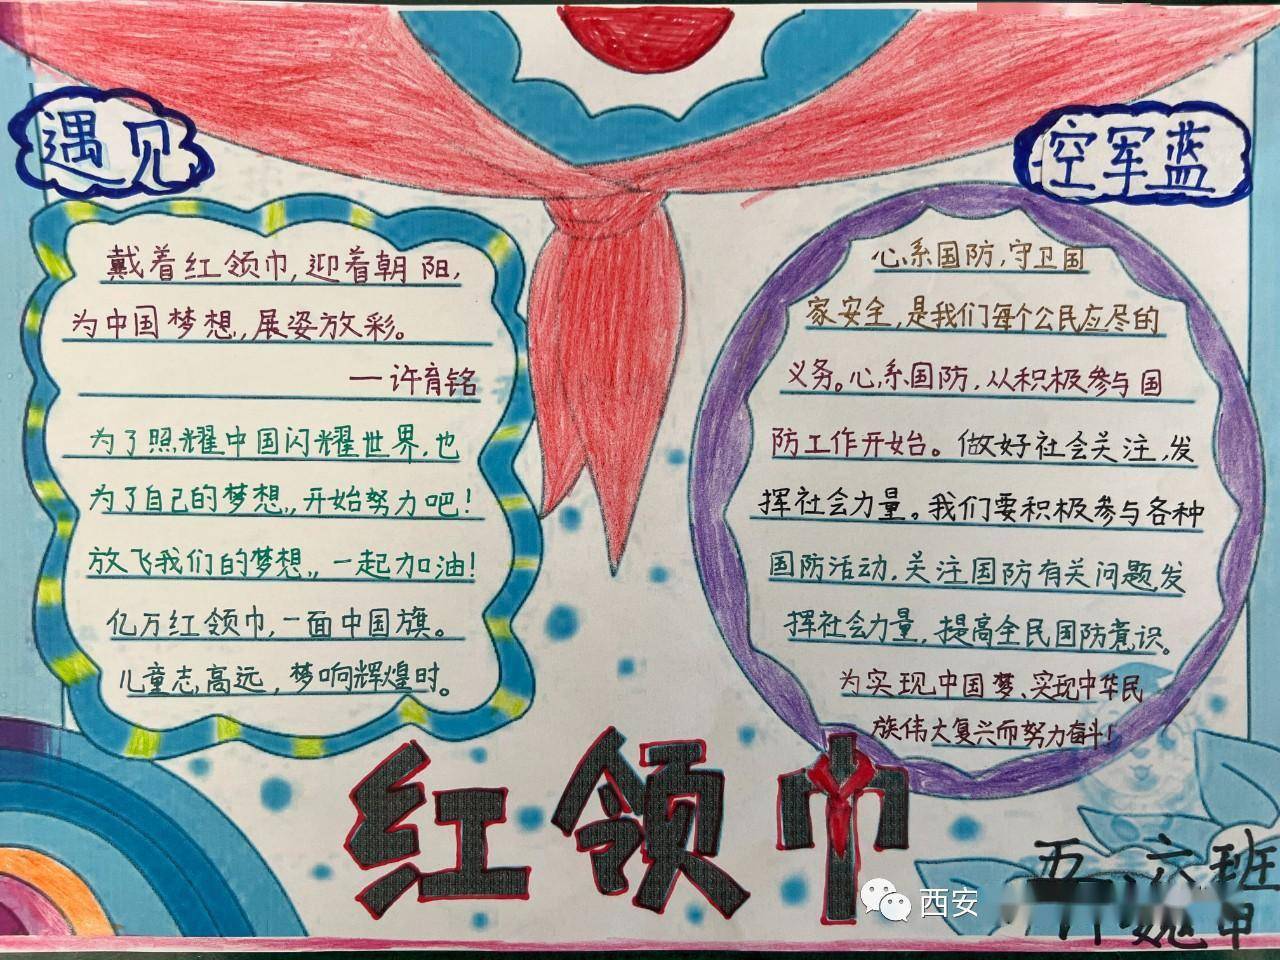 遇见
空军蓝
戴着红领巾,迎着朝阳,
为中国梦想,展姿放彩。
—许育铭
为了照耀中国闪耀世界,也
为了自己的梦想,,开始努力吧!
放飞我们的梦想,,一起加油!
亿万红领巾,一面中国旗。
儿童志高远,梦响辉煌时。
心系国防,守卫国
家安全,是我们每个公民应尽的
义务。心系国防,从积极参与国
防工作开始。做好社会关注,发
挥社会力量。我们要积极参与各种
国防活动,关注国防有关问题,发
挥社会力量,提高全民国防意识。
为实现中国梦、实现中华民
族伟大复兴而努力奋斗!
红领巾
五、六班
西安